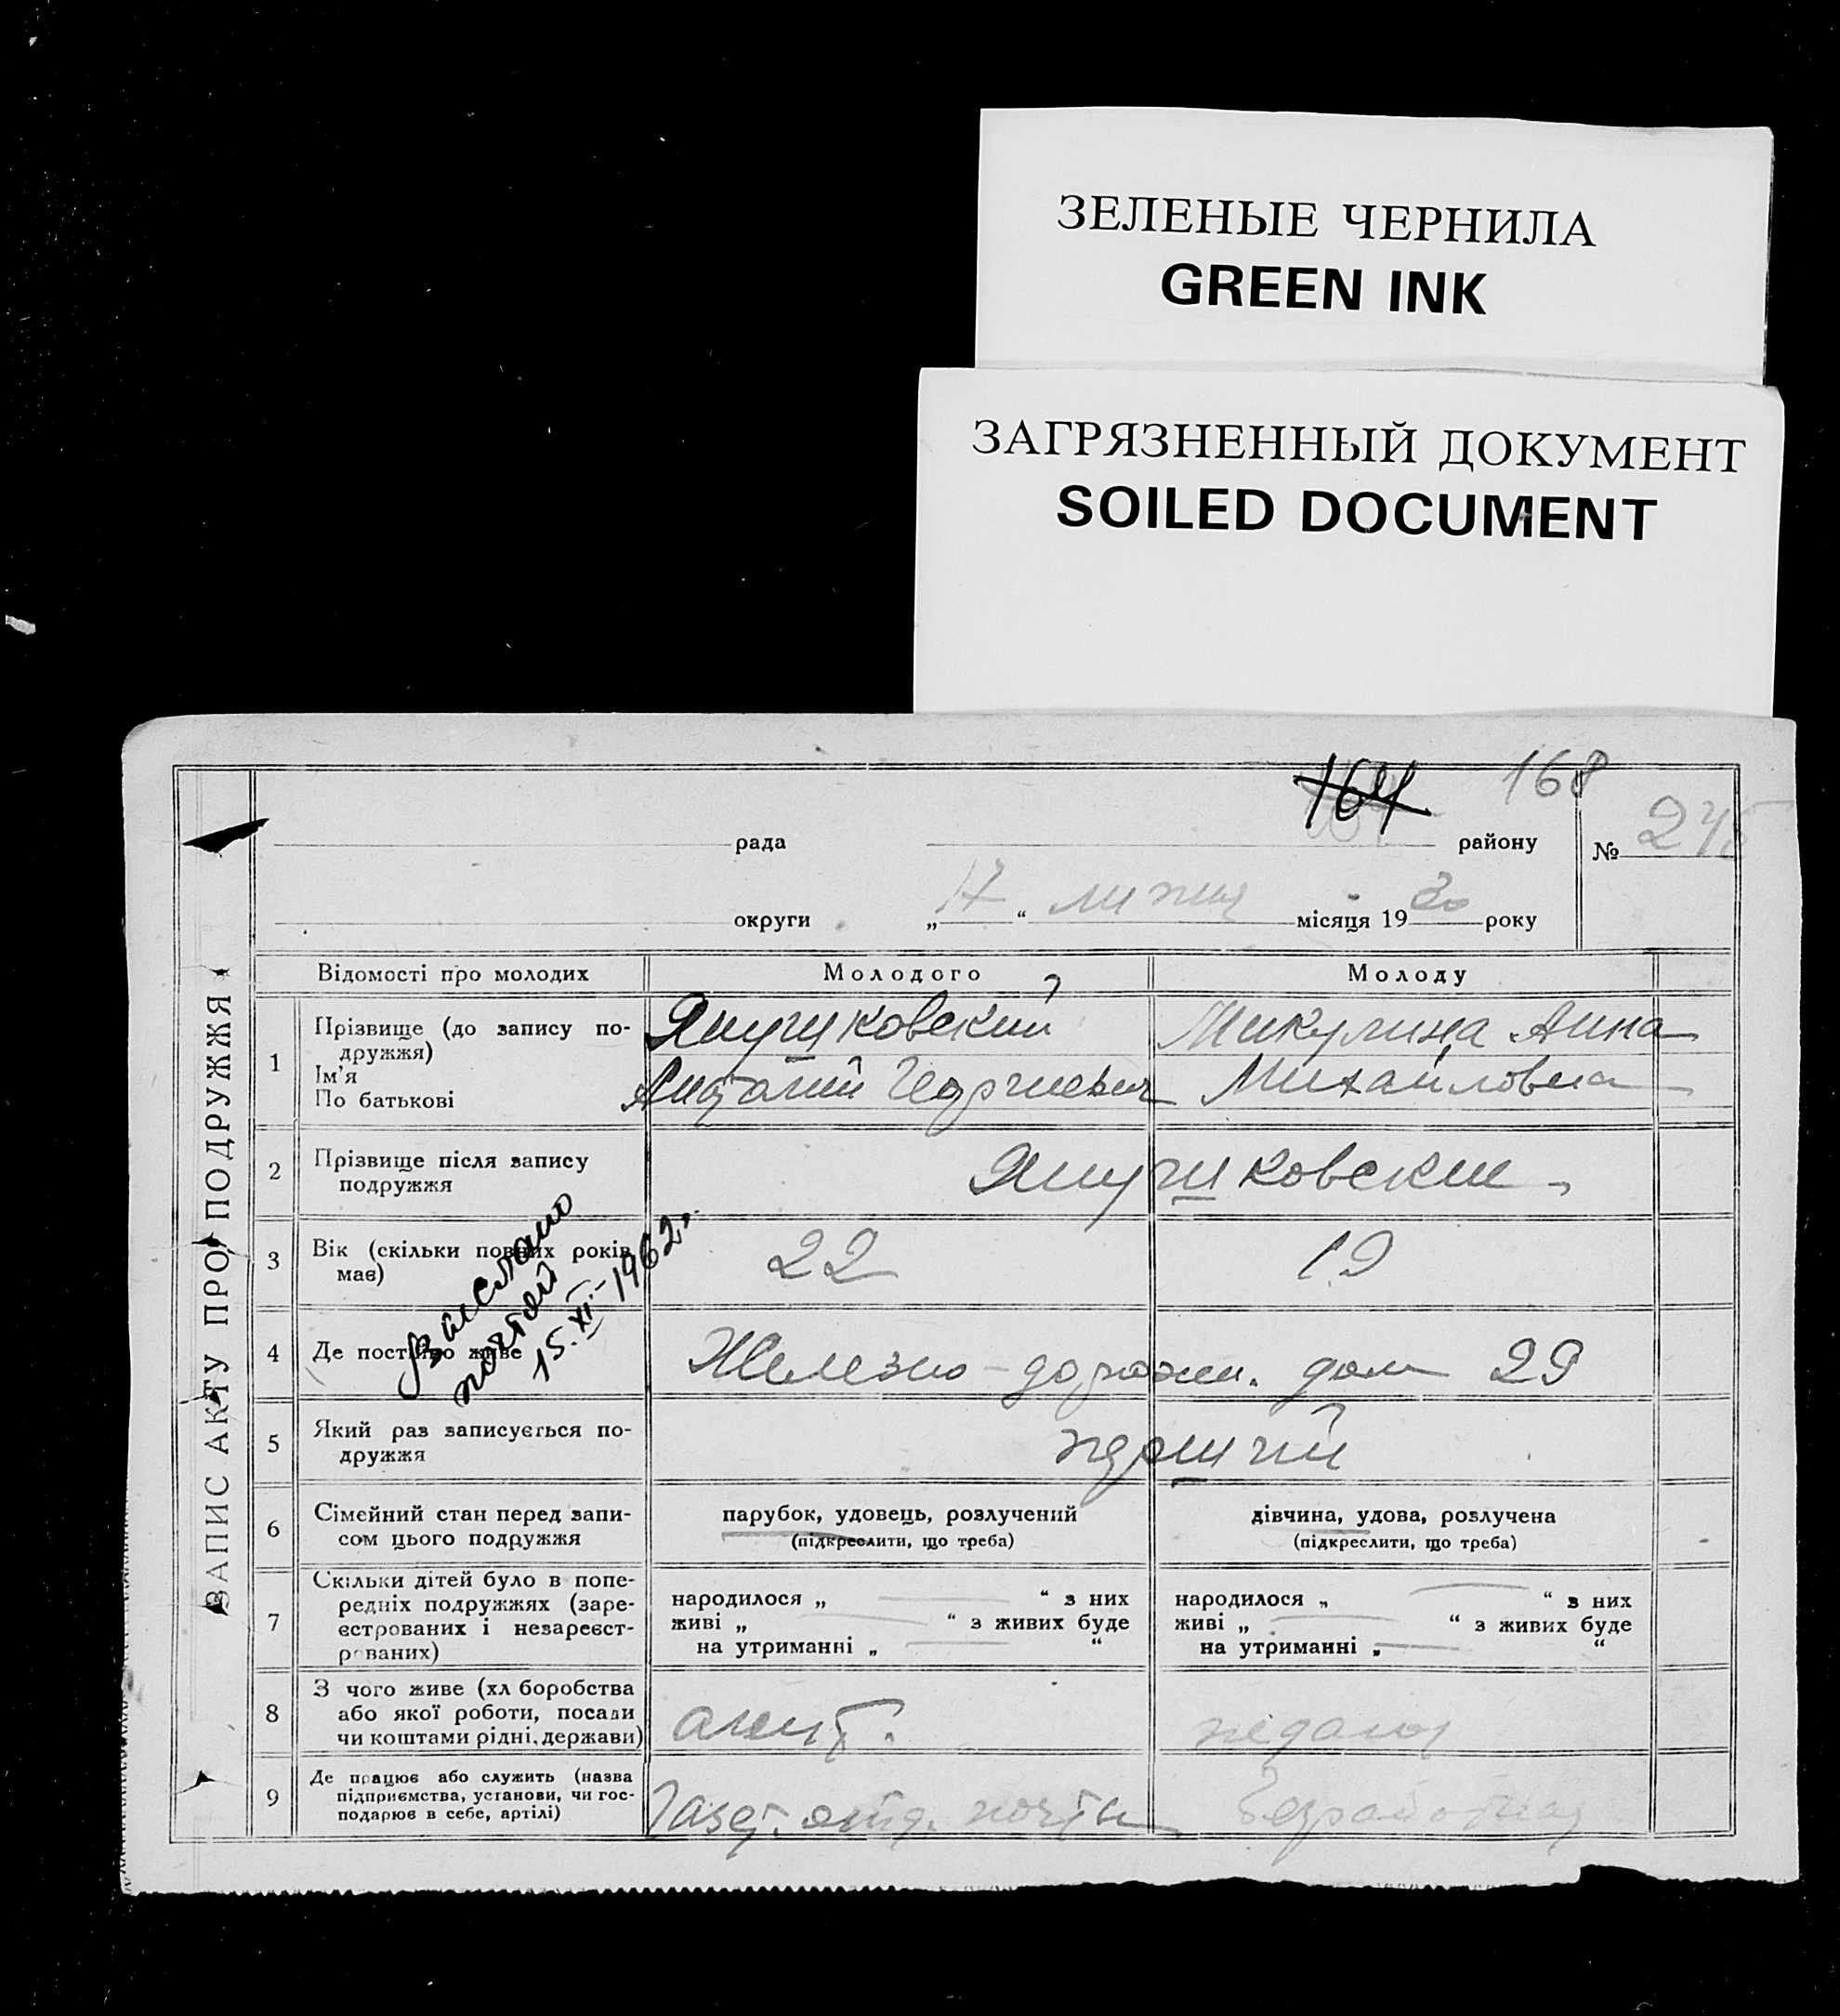 ЗЕЛЕНЫЕ ЧЕРНИЛА
GREEN INK
ЗАГРЯЗНЕННЫЙ ДОКУМЕНТ
SOILED DOCUMENT
ЗАПИС АКТУ ПРО ПОДРУЖЖЯ
164 168
рада району № 245
округи „17“ липня місяця 1930 року
Відомості про молодих Молодого Молоду
1 Прізвище (до запису по-
дружжя)
Ім'я
По батькові
Янушковский Микулина Анна
Анатолий Георгиевич Михайловна
2 Прізвище після запису
подружжя
Янушковские
3 Вік (скільки повних років
має)
22 19
Выслано
почтой
15.XI-1962г.
4 Де постійно живе
Железно-дорожн. дом 29
5 Який раз записується по-
дружжя
перший
6 Сімейний стан перед запи-
сом цього подружжя
парубок, удовець, розлучений
(підкреслити, що треба)
дівчина, удова, розлучена
(підкреслити, що треба)
7 Скільки дітей було в попе-
редніх подружжях (заре-
єстрованих і незареєст-
рованих)
народилося „ “ з них
живі „ “ з живих буде
на утриманні „ “
народилося „ “ з них
живі „ “ з живих буде
на утриманні „ “
8 З чого живе (хліборобства
або якої роботи, посади
чи коштами рідні, держави)
агент. педагог
9 Де працює або служить (назва
підприємства, установи, чи гос-
подарює в себе, артілі)
Газет. отд. почты Безработная